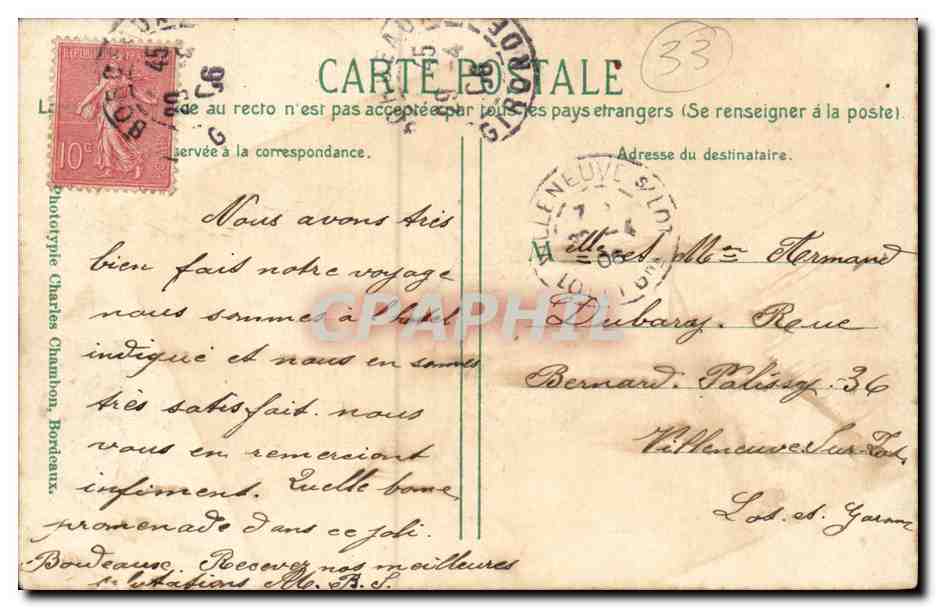 33
CARTE POSTALE
au recto n'est pas acceptée par tous les pays etrangers (Se renseigner á la poste).
servée à la correspondance.
Adresse du destinataire.
REPUBLIQUE
10 c
GIRONDE
VILLENEUVE S/LOT
06
Nous avons très
bien fait notre voyage
nous sommes à l'hotel
indiqué et nous en sommes
très satisfait. nous
vous en remerciont
infiment. Quelle bonne
promenade dans ce joli
Bordeause. Recevez nos meilleures
salutations M. B. S.
Mille et Mr Hermand
Dubary. Reue
Bernard. Palissy. 36
Villeneuve Sur Lot
Lot. et. Garonne
Phototypie Charles Chambon, Bordeaux.
CPAPHIL